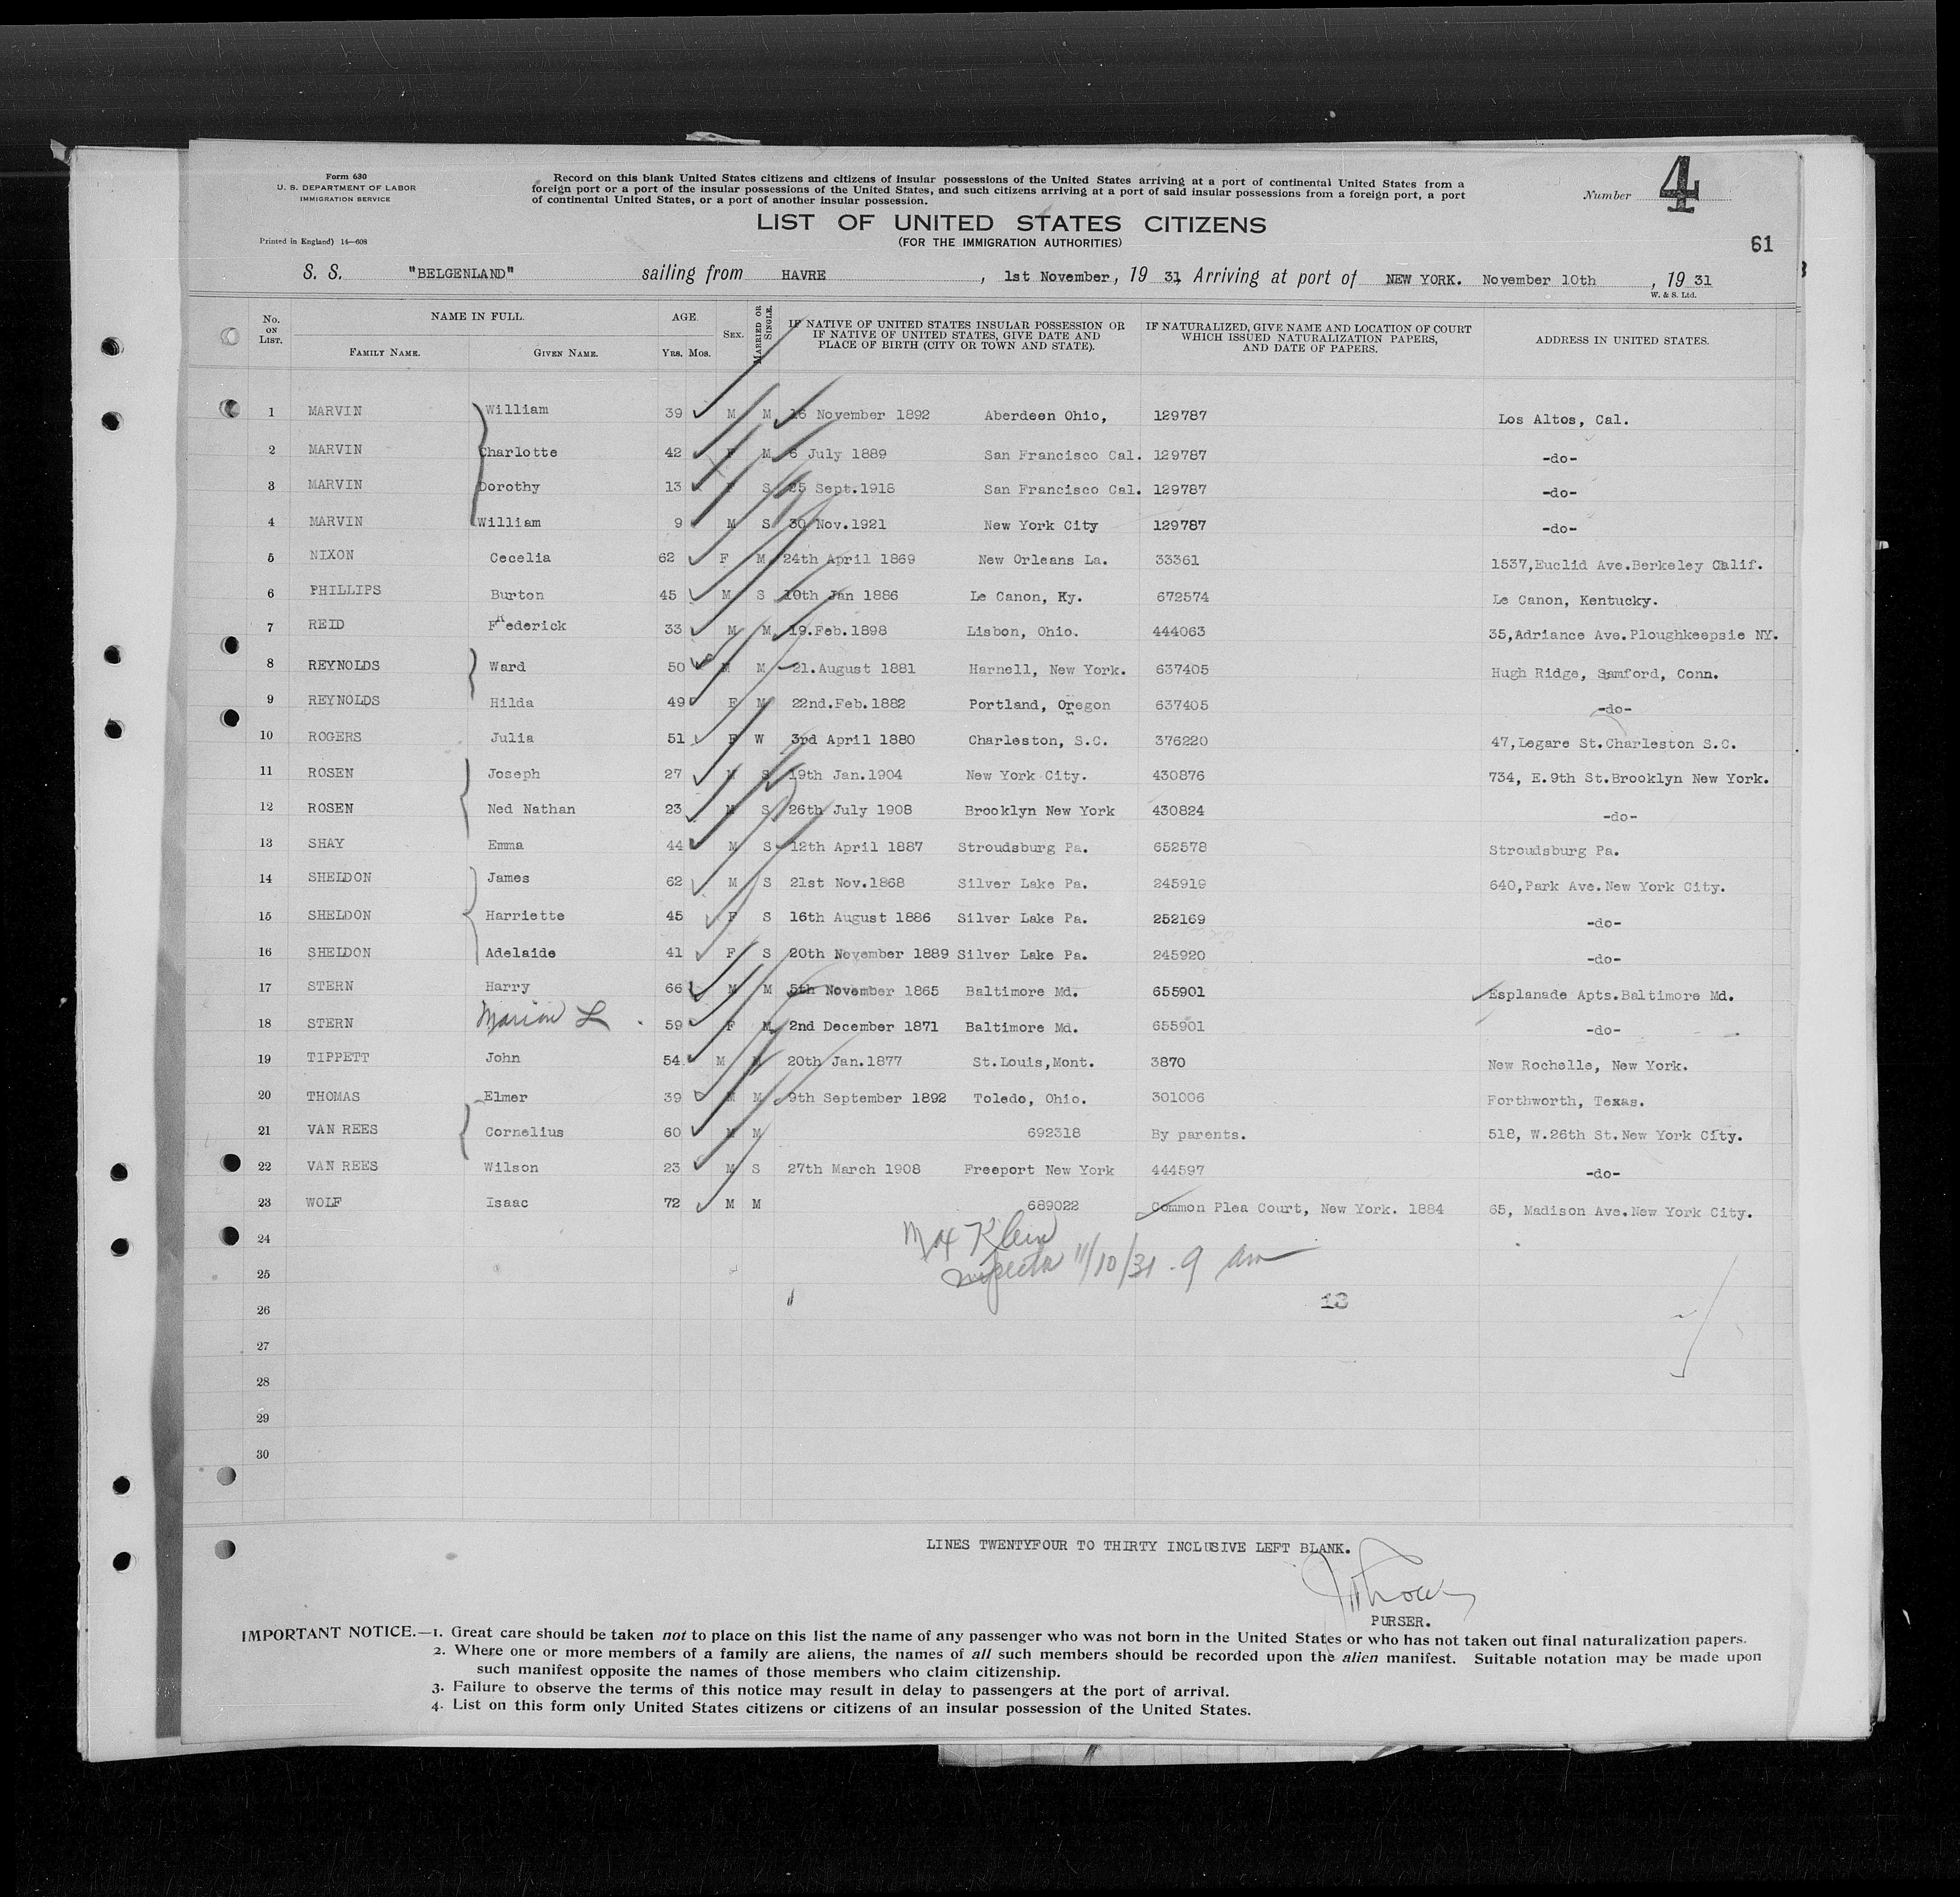 Form 630
U. S. DEPARTMENT OF LABOR
IMMIGRATION SERVICE
Printed in England) 14—608
Record on this blank United States citizens and citizens of insular possessions of the United States arriving at a port of continental United States from a
foreign port or a port of the insular possessions of the United States, and such citizens arriving at a port of said insular possessions from a foreign port, a port
of continental United States, or a port of another insular possession.
Number 4
LIST OF UNITED STATES CITIZENS
(FOR THE IMMIGRATION AUTHORITIES)
61
S. S. "BELGENLAND" sailing from HAVRE, 1st November, 19 31, Arriving at port of NEW YORK. November 10th, 19 31
W. & S. Ltd.
No. ON LIST. NAME IN FULL. FAMILY NAME. GIVEN NAME. AGE. YRS. MOS. SEX. MARRIED OR SINGLE. IF NATIVE OF UNITED STATES INSULAR POSSESSION OR IF NATIVE OF UNITED STATES, GIVE DATE AND PLACE OF BIRTH (CITY OR TOWN AND STATE). IF NATURALIZED, GIVE NAME AND LOCATION OF COURT WHICH ISSUED NATURALIZATION PAPERS, AND DATE OF PAPERS. ADDRESS IN UNITED STATES.
1 MARVIN William 39 M M 16 November 1892 Aberdeen Ohio, 129787 Los Altos, Cal.
2 MARVIN Charlotte 42 F M 6 July 1889 San Francisco Cal. 129787 -do-
3 MARVIN Dorothy 13 F S 25 Sept.1918 San Francisco Cal. 129787 -do-
4 MARVIN William 9 M S 30 Nov.1921 New York City 129787 -do-
5 NIXON Cecelia 62 F M 24th April 1869 New Orleans La. 33361 1537,Euclid Ave.Berkeley Calif.
6 PHILLIPS Burton 45 M S 10th Jan 1886 Le Canon, Ky. 672574 Le Canon, Kentucky.
7 REID FRederick 33 M M 19.Feb.1898 Lisbon, Ohio. 444063 35,Adriance Ave.Ploughkeepsie NY.
8 REYNOLDS Ward 50 M M 21.August 1881 Harnell, New York. 637405 Hugh Ridge, Samford, Conn.
9 REYNOLDS Hilda 49 F M 22nd.Feb.1882 Portland, Oregon 637405 -do-
10 ROGERS Julia 51 F W 3rd April 1880 Charleston, S.C. 376220 47,Legare St.Charleston S.C.
11 ROSEN Joseph 27 M S 19th Jan.1904 New York City. 430876 734, E.9th St.Brooklyn New York.
12 ROSEN Ned Nathan 23 M S 26th July 1908 Brooklyn New York 430824 -do-
13 SHAY Emma 44 M S 12th April 1887 Stroudsburg Pa. 652578 Stroudsburg Pa.
14 SHELDON James 62 M S 21st Nov.1868 Silver Lake Pa. 245919 640,Park Ave.New York City.
15 SHELDON Harriette 45 F S 16th August 1886 Silver Lake Pa. 252169 -do-
16 SHELDON Adelaide 41 F S 20th November 1889 Silver Lake Pa. 245920 -do-
17 STERN Harry 66 M M 5th November 1865 Baltimore Md. 655901 Esplanade Apts.Baltimore Md.
18 STERN Marion L 59 F M 2nd December 1871 Baltimore Md. 655901 -do-
19 TIPPETT John 54 M M 20th Jan.1877 St.Louis,Mont. 3870 New Rochelle, New York.
20 THOMAS Elmer 39 M M 9th September 1892 Toledo, Ohio. 301006 Forthworth, Texas.
21 VAN REES Cornelius 60 M M 692318 By parents. 518, W.26th St.New York City.
22 VAN REES Wilson 23 M S 27th March 1908 Freeport New York 444597 -do-
23 WOLF Isaac 72 M M 689022 Common Plea Court, New York. 1884 65, Madison Ave.New York City.
24 Max Klein
25 Inspector 11/10/31 . 9 am
26 13
27
28
29
30
LINES TWENTYFOUR TO THIRTY INCLUSIVE LEFT BLANK.
PURSER.
IMPORTANT NOTICE.—1. Great care should be taken not to place on this list the name of any passenger who was not born in the United States or who has not taken out final naturalization papers.
2. Where one or more members of a family are aliens, the names of all such members should be recorded upon the alien manifest. Suitable notation may be made upon
such manifest opposite the names of those members who claim citizenship.
3. Failure to observe the terms of this notice may result in delay to passengers at the port of arrival.
4. List on this form only United States citizens or citizens of an insular possession of the United States.